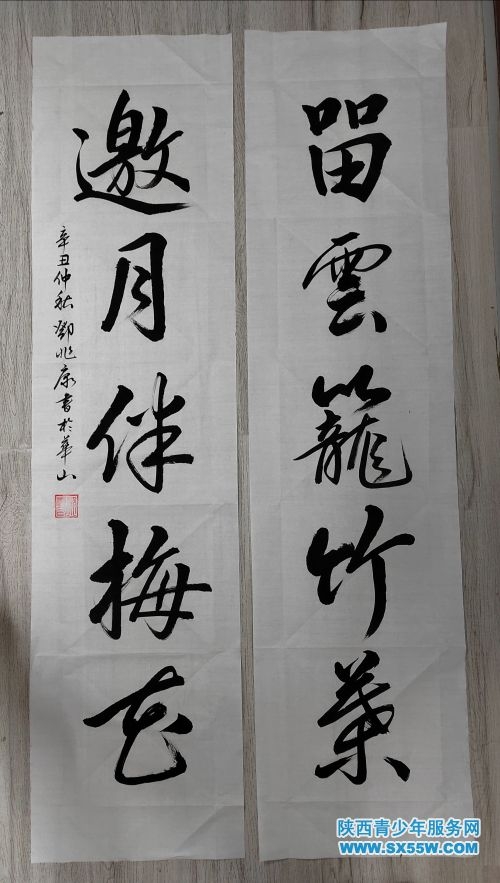 畱雲籠竹葉
邀月伴梅花
辛丑仲秋鄧兆康書於華山
陕西青少年服务网
www.sx55w.com